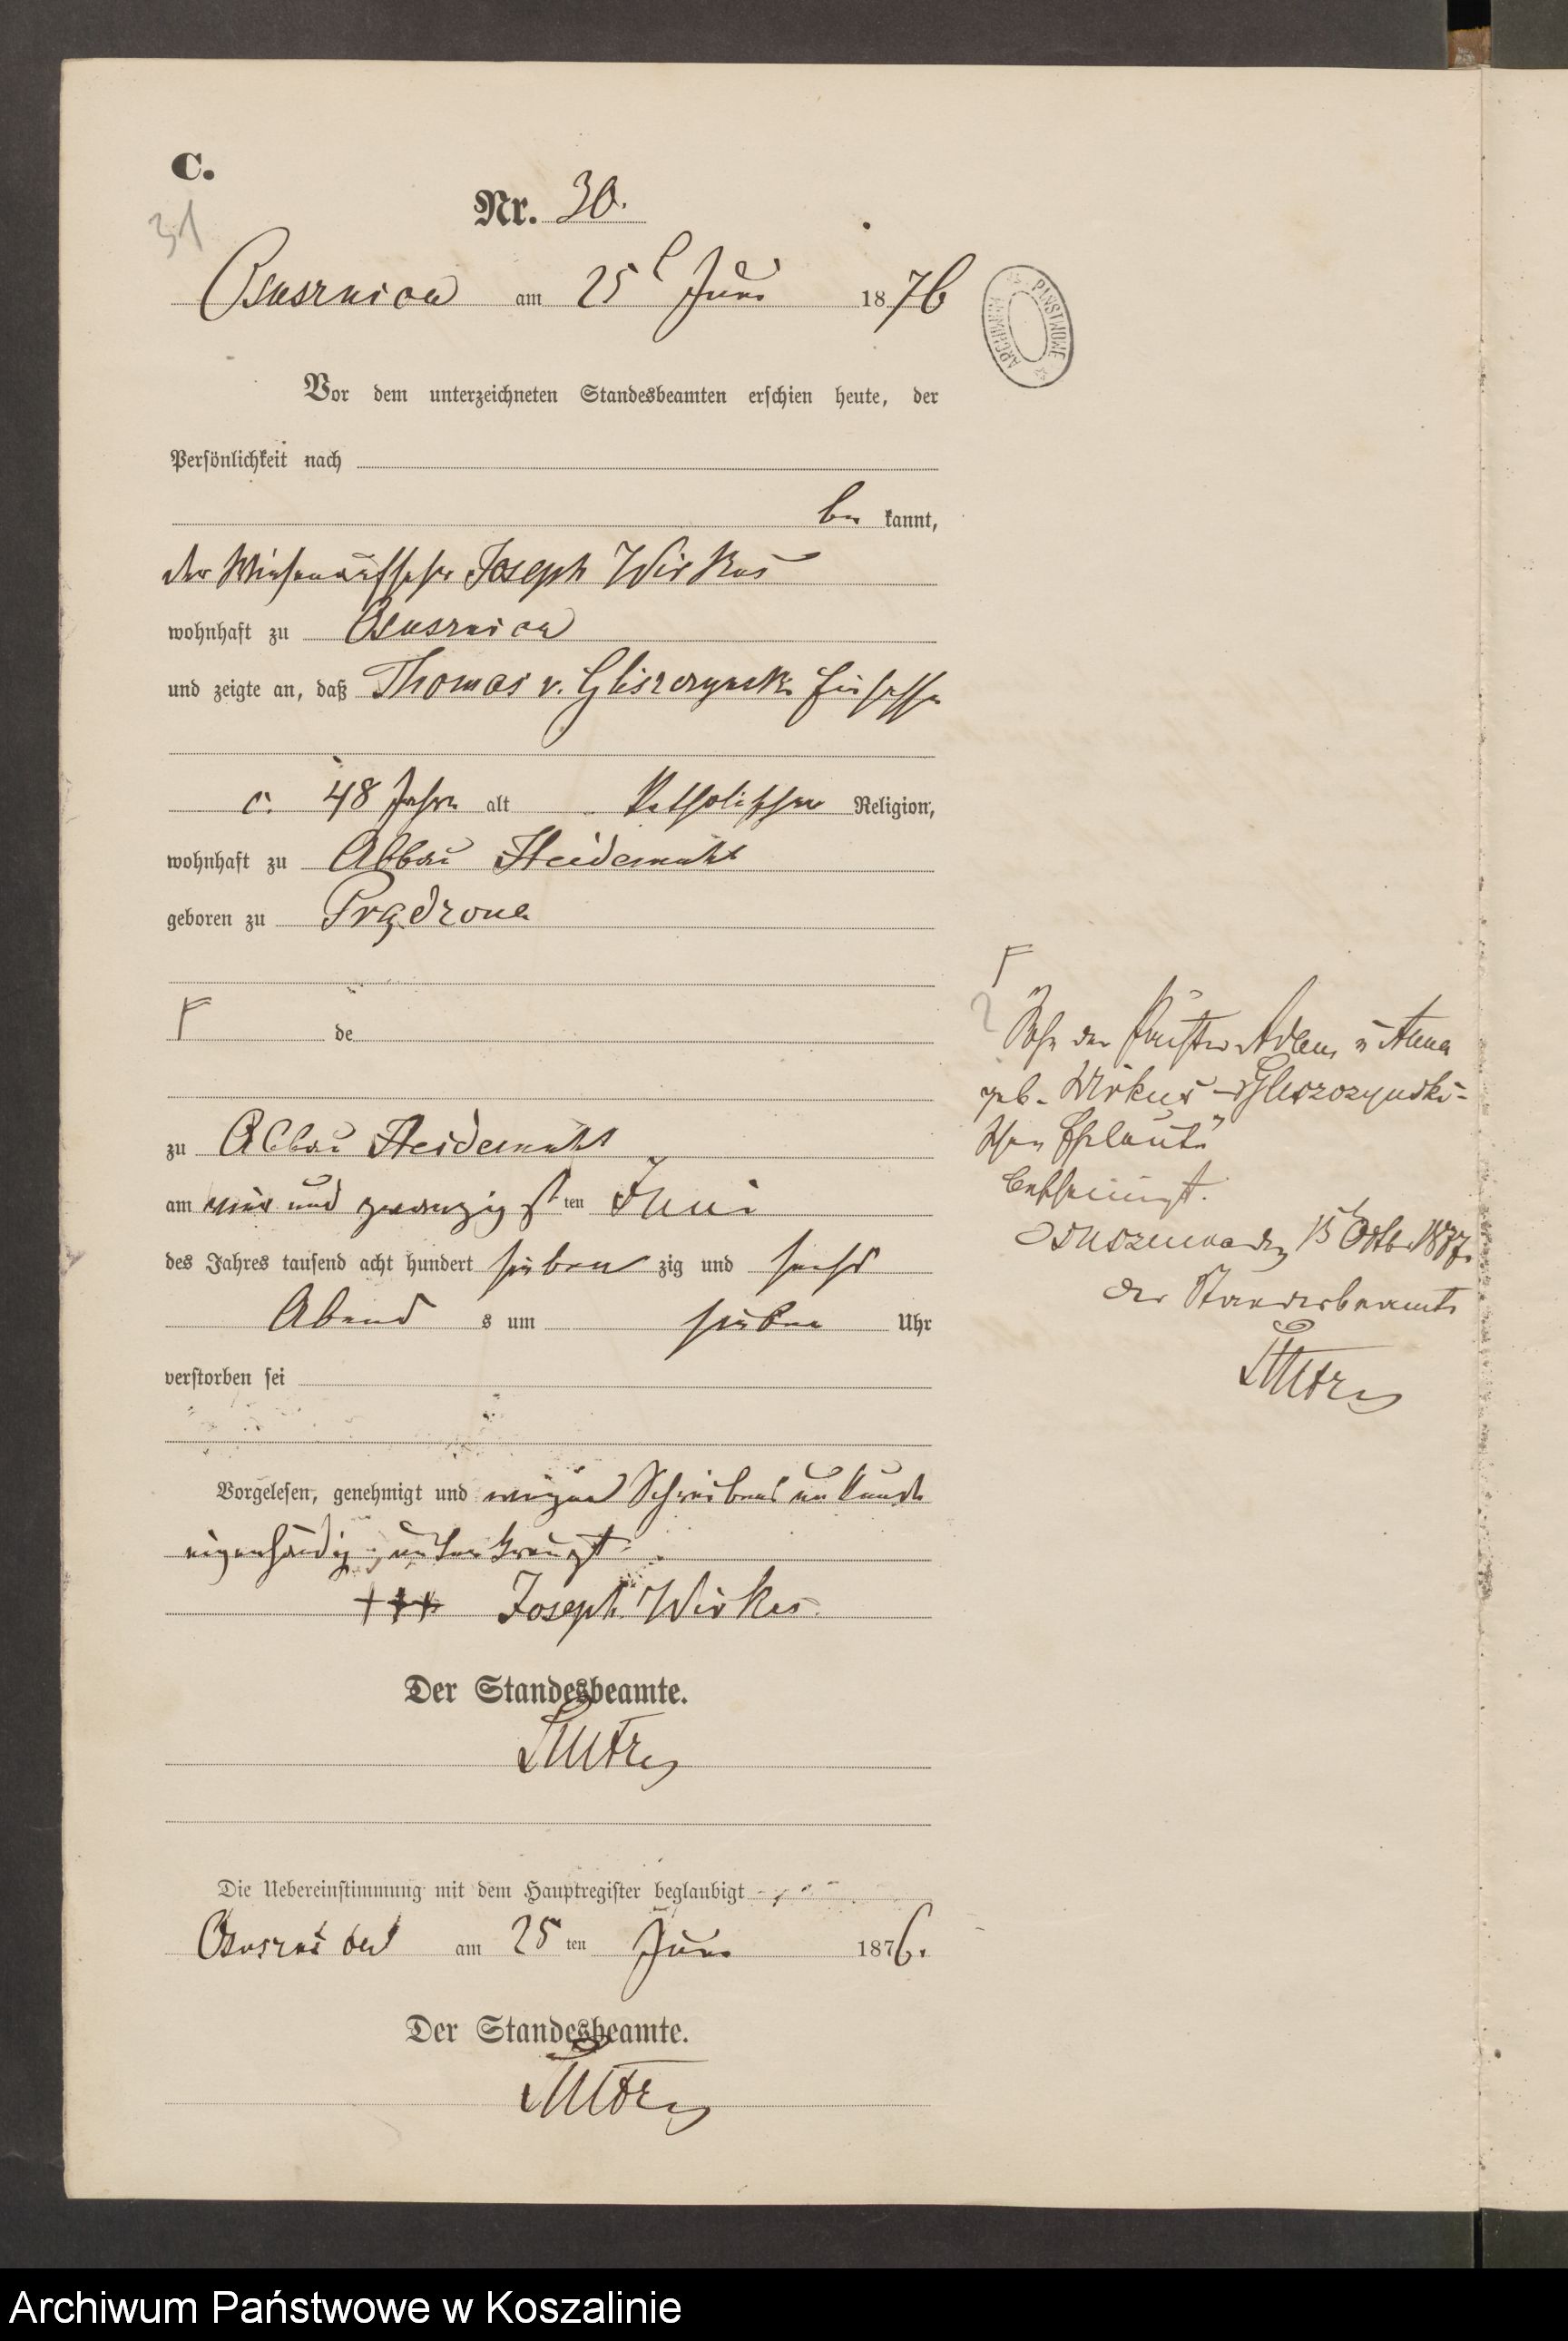 C.
31
Nr. 30.
am 25t Juni 1876
ARCHIWUM PAŃSTWOWE
Vor dem unterzeichneten Standesbeamten erschien heute, der
Persönlichkeit nach
be kannt,
der Wiesenaufseher Joseph Wirkus
wohnhaft zu
und zeigte an, daß Thomas v. Gliszczynski Einsasse
c. 48 Jahre alt katholischer Religion,
wohnhaft zu Abbau Heidemühl
geboren zu Prądzona
de
zu Abbau Heidemühl
am und zwanzigsten Juni
des Jahres tausend acht hundert sieben zig und sechs
Abend s um sieben Uhr
verstorben sei
Vorgelesen, genehmigt und wegen Schreibens unkunde
eigenhändig unterkreuzt
+++ Joseph Wirkus
Der Standesbeamte.
Die Uebereinstimmung mit dem Hauptregister beglaubigt
am 25 ten Juni 1876.
Der Standesbeamte.
Sohn der Adam u Anna
geb. Wirkus - Gliszczynski-
schen Eheleute
bescheinigt.
den 15t Octb. 1877.
Der Standesbeamte
Archiwum Państwowe w Koszalinie